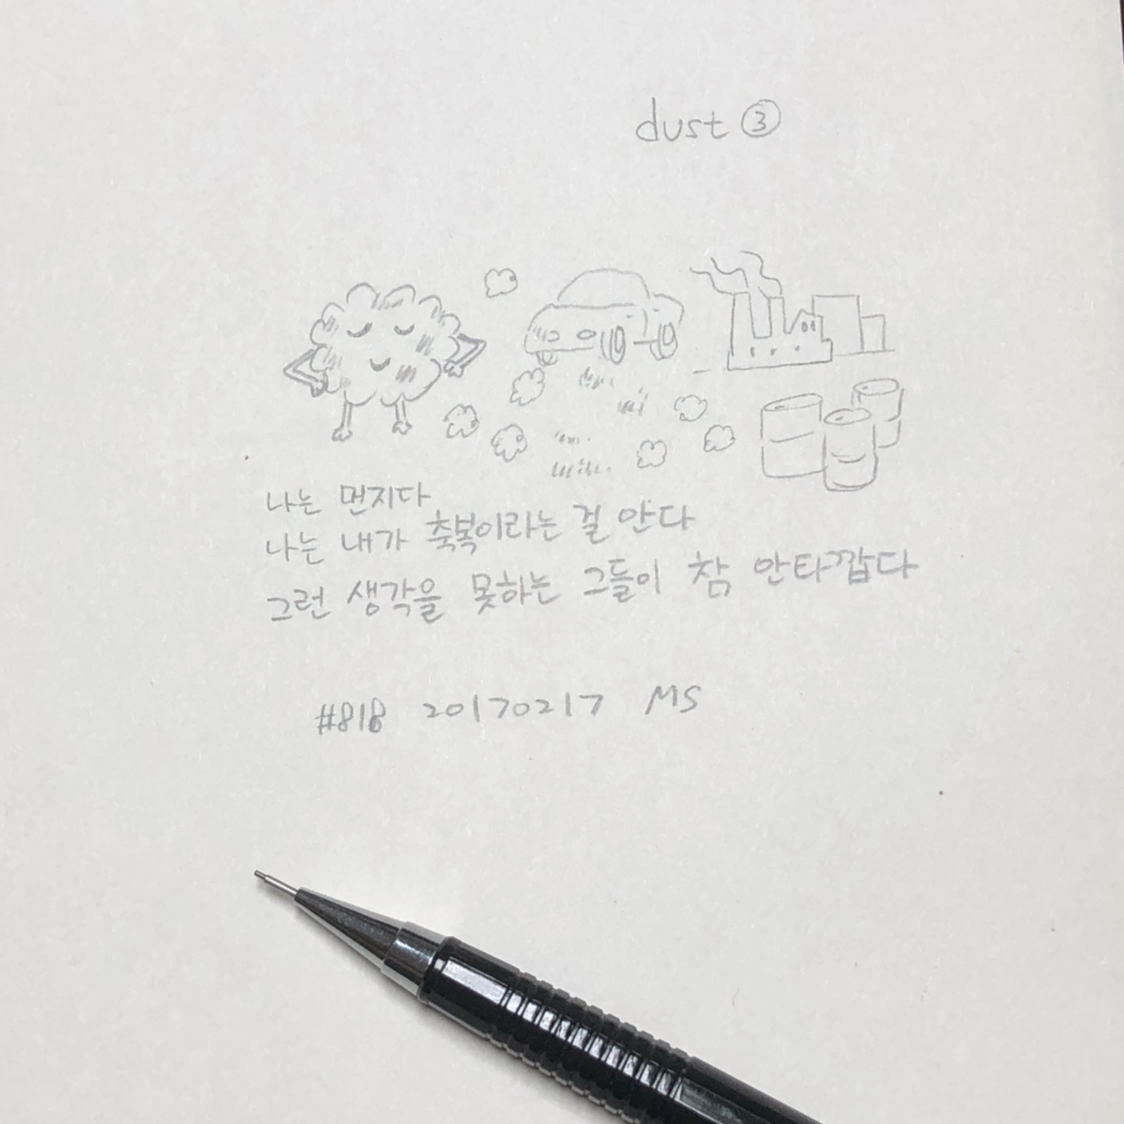 dust ③
나는 먼지다
나는 내가 축복이라는 걸 안다
그런 생각을 못하는 그들이 참 안타깝다
#818 20170217 MS